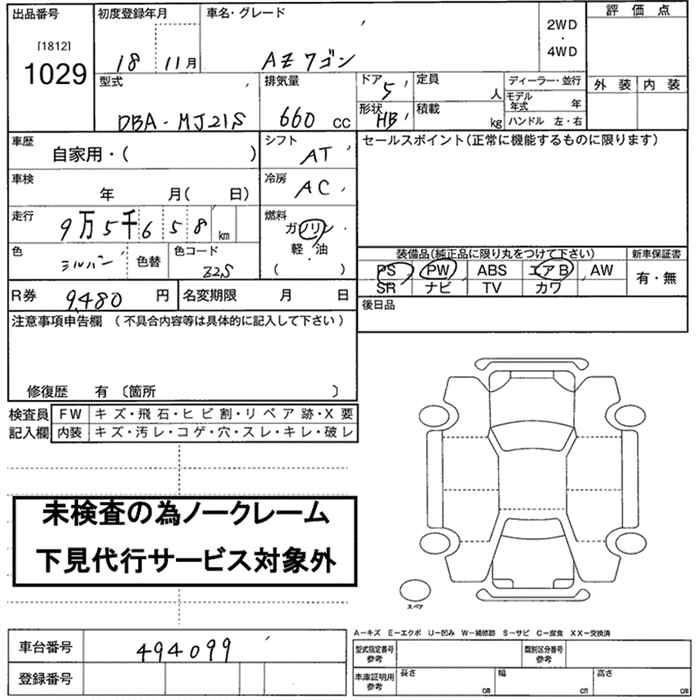 出品番号 初度登録年月 車名・グレード 評価点
[1812]
1029
18 11月 AZワゴン
2WD
・
4WD
外装 内装
型式 排気量 ドア 定員 ディーラー・並行
DBA-MJ21S 660 CC 5 人 モデル年式 年
形状 積載 HB kg ハンドル 左・右
車歴 シフト セールスポイント(正常に機能するものに限ります)
自家用・( ) AT
車検 冷房
年 月( 日) AC
走行 燃料
9万5千658 km ガソリン
軽・油
( )
色 色替 色コード
シルバー Z2S
装備品(純正品に限り丸をつけて下さい) 新車保証書
PS PW ABS エアB AW 有・無
SR ナビ TV カワ
R券 9,480 円 名変期限 月 日 後日品
注意事項申告欄 (不具合内容等は具体的に記入して下さい)
修復歴 有 〔箇所 〕
検査員 FW キズ・飛石・ヒビ割・リペア跡・X要
記入欄 内装 キズ・汚レ・コゲ・穴・スレ・キレ・破レ
未検査の為ノークレーム
下見代行サービス対象外
スペア
A−キズ E−エクボ U−凹み W−補修跡 S−サビ C−腐食 XX−交換済
車台番号 494099 型式指定番号 参考 類別区分番号 参考
登録番号 車庫証明用 参考 長さ cm 幅 cm 高さ cm